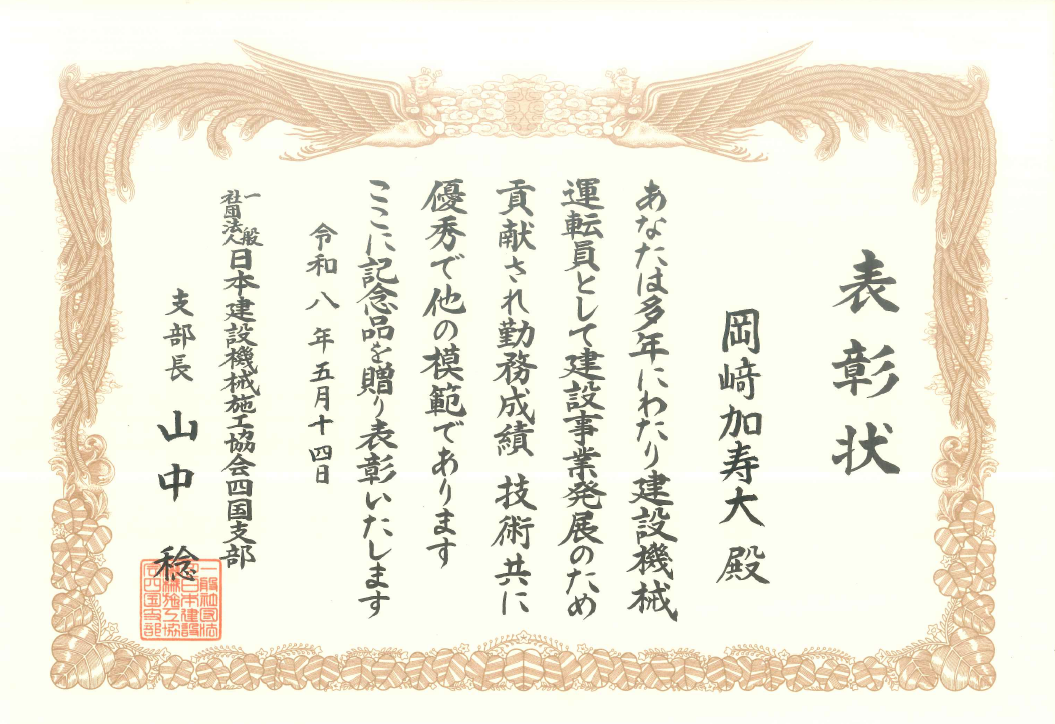 表彰状
岡﨑加寿大 殿
あなたは多年にわたり建設機械
運転員として建設事業発展のため
貢献され勤務成績 技術共に
優秀で他の模範であります
ここに記念品を贈り表彰いたします
令和八年五月十四日
一般社団法人日本建設機械施工協会四国支部
支部長 山中 稔
一般社団法
人日本建設
機械施工協
会四国支部